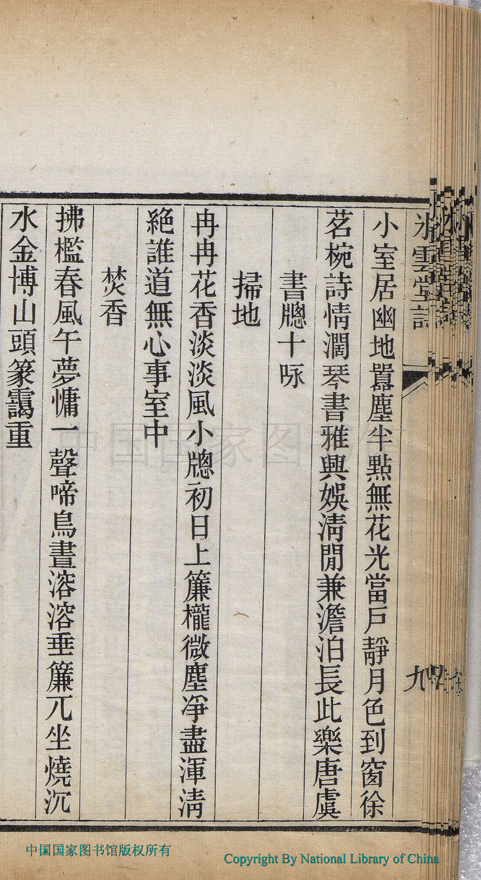 小室居幽地囂塵半點無花光當戶靜月色到窗徐
茗椀詩情潤琴書雅興娛淸閒兼澹泊長此樂唐虞
書牕十咏
掃地
冉冉花香淡淡風小牕初日上簾櫳微塵凈盡渾淸
絶誰道無心事室中
焚香
拂檻春風午夢慵一聲啼鳥晝溶溶垂簾兀坐燒沉
水金博山頭篆靄重
九
中国国家图书馆
中国国家图书馆版权所有
Copyright By National Library of China